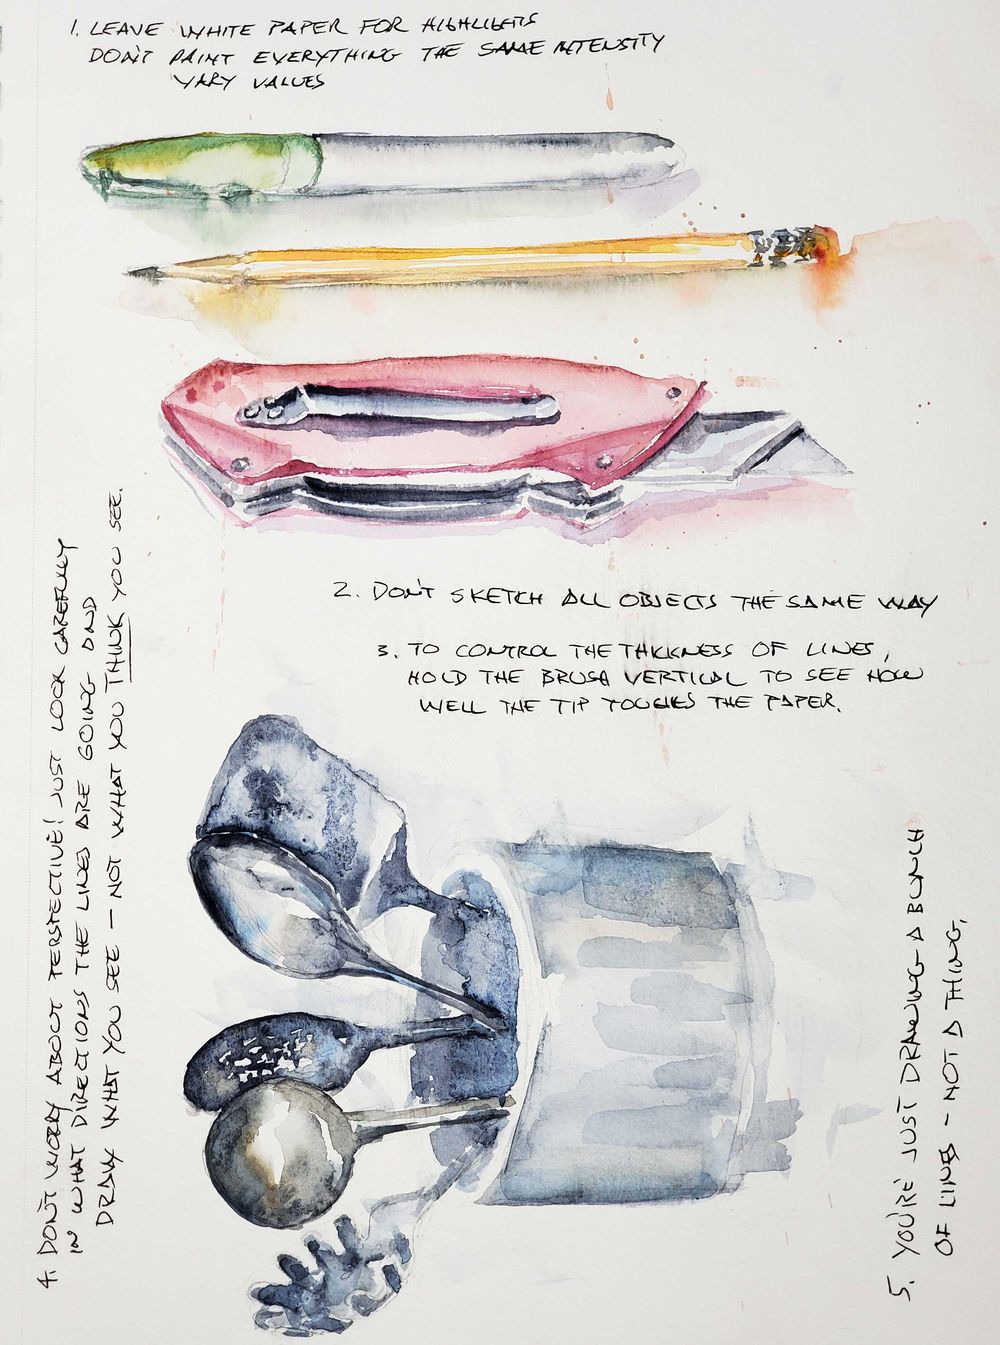 1. LEAVE WHITE PAPER FOR HIGHLIGHTS
DON'T PAINT EVERYTHING THE SAME INTENSITY
VARY VALUES
2. DON'T SKETCH ALL OBJECTS THE SAME WAY
3. TO CONTROL THE THICKNESS OF LINES,
HOLD THE BRUSH VERTICAL TO SEE HOW
WELL THE TIP TOUCHES THE PAPER.
4. DON'T WORRY ABOUT PERSPECTIVE! JUST LOOK CAREFULLY
IN WHAT DIRECTIONS THE LINES ARE GOING AND
DRAW WHAT YOU SEE - NOT WHAT YOU THINK YOU SEE.
5. YOU'RE JUST DRAWING A BUNCH
OF LINES - NOT A THING.